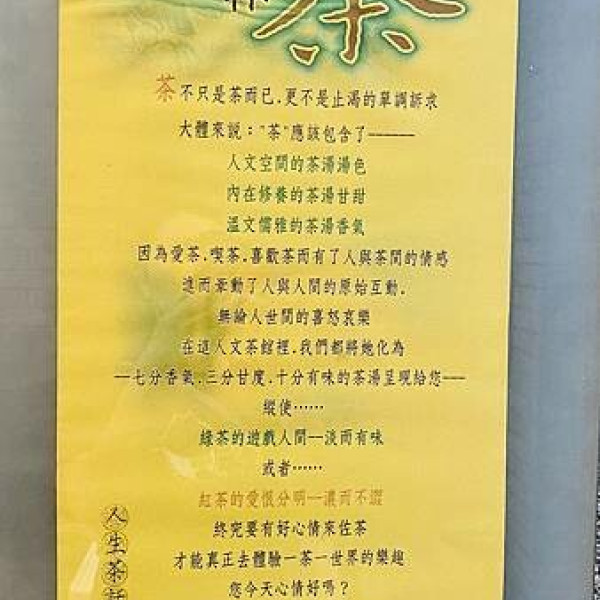 茶
茶不只是茶而已.更不是止渴的單調訴求
大體來說："茶"應該包含了-----
人文空間的茶湯湯色
內在修養的茶湯甘甜
溫文儒雅的茶湯香氣
因為愛茶.喫茶.喜歡茶而有了人與茶間的情感
進而牽動了人與人間的原始互動.
無論人世間的喜怒哀樂
在這人文茶館裡.我們都將她化為
--七分香氣.三分甘度.十分有味的茶湯呈現給您---
縱使……
綠茶的遊戲人間--淡而有味
或者……
紅茶的愛恨分明--濃而不澀
終究要有好心情來佐茶
才能真正去體驗一茶一世界的樂趣
您今天心情好嗎？
人生茶話